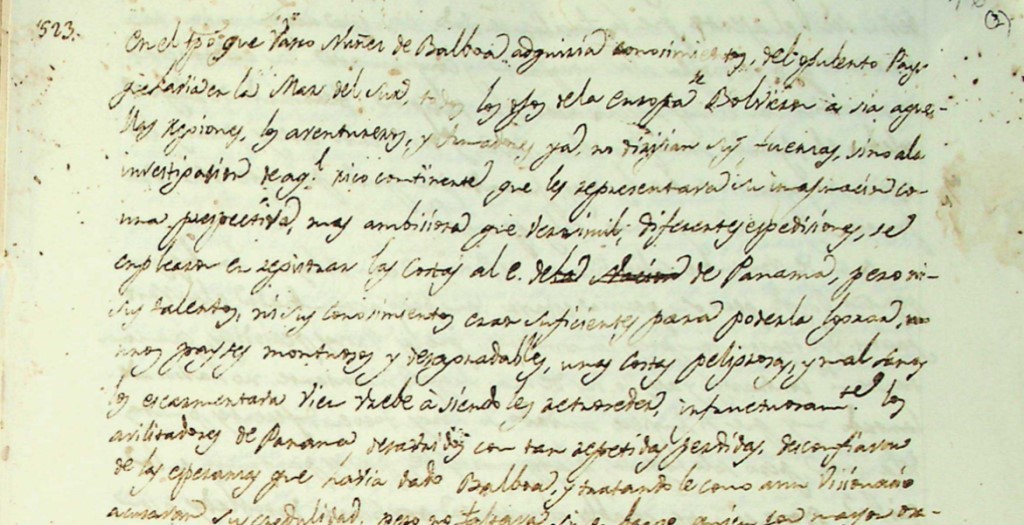 1523.
(3)
En el tpõ que Vasco Nuñez de Balboa adquiria conosimientos, del opulento Pays
que havia en la Mar del Sur, todos los ojos de la Europa se Bolvieron a sia aque-
llos regiones, los aventureros, y ya, no dirijian sus fuerzas, sino ala
investigacion de aql. rico continente, que les representava su imaginacion co-
una prespectiva, mas ambisiosa que verosimil; diferentes espedisiones, se
emplearon en registrar las Costas al E. de la de Panamá, pero ni
sus talentos, ni sus conosimientos eran suficientes para poderla lograr,
unos payses montuosos y desagradables, unas Costas peligrosas, y mal sanas
los escarmentava bien breve asiendo les retroceder, infructuosamte. los
avilitadores de Panama, desabridos con tan repetidas perdidas, desconfiaron
de las esperanzas que havia dado Balboa, y tratando le como a un Vicionario
acusaron su credulidad, pero no faltava